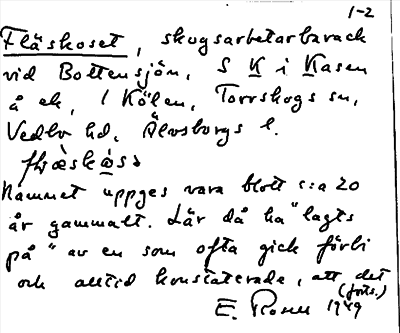 1-2
Fläskoset, skogsarbetarbarack
vid Bottensjön, S K i Kasen
å ek, i Kölen, Torrskogs sn,
Vedbo hd, Älvsborgs l.
Namnet uppges vara blott c:a 20
år gammalt. Lär då ha "lagts
på" av en som ofta gick förbi
och alltid konstaterade, att det
(forts.)
E. Rosen 1949